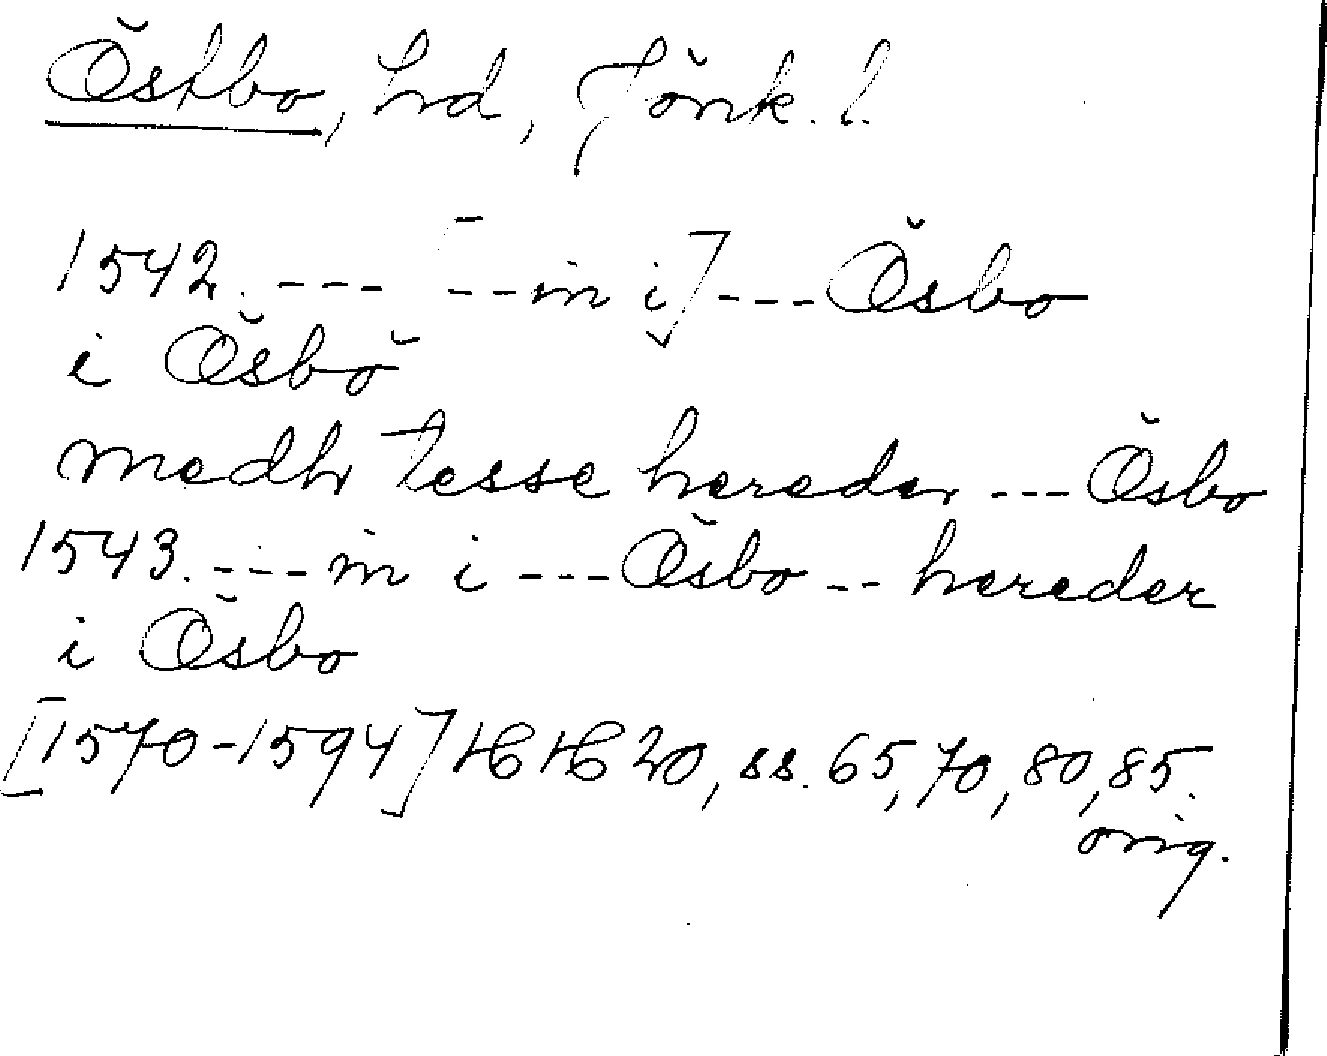 Östbo, hd, Jönk. l.
1542. --- [--in i] --- Ösbo
i Ösbö
medh tesse hereder --- Ösbo
1543. --- in i --- Ösbo -- hereder
i Ösbo
[1570-1594] HH 20, ss. 65, 70, 80, 85.
orig.